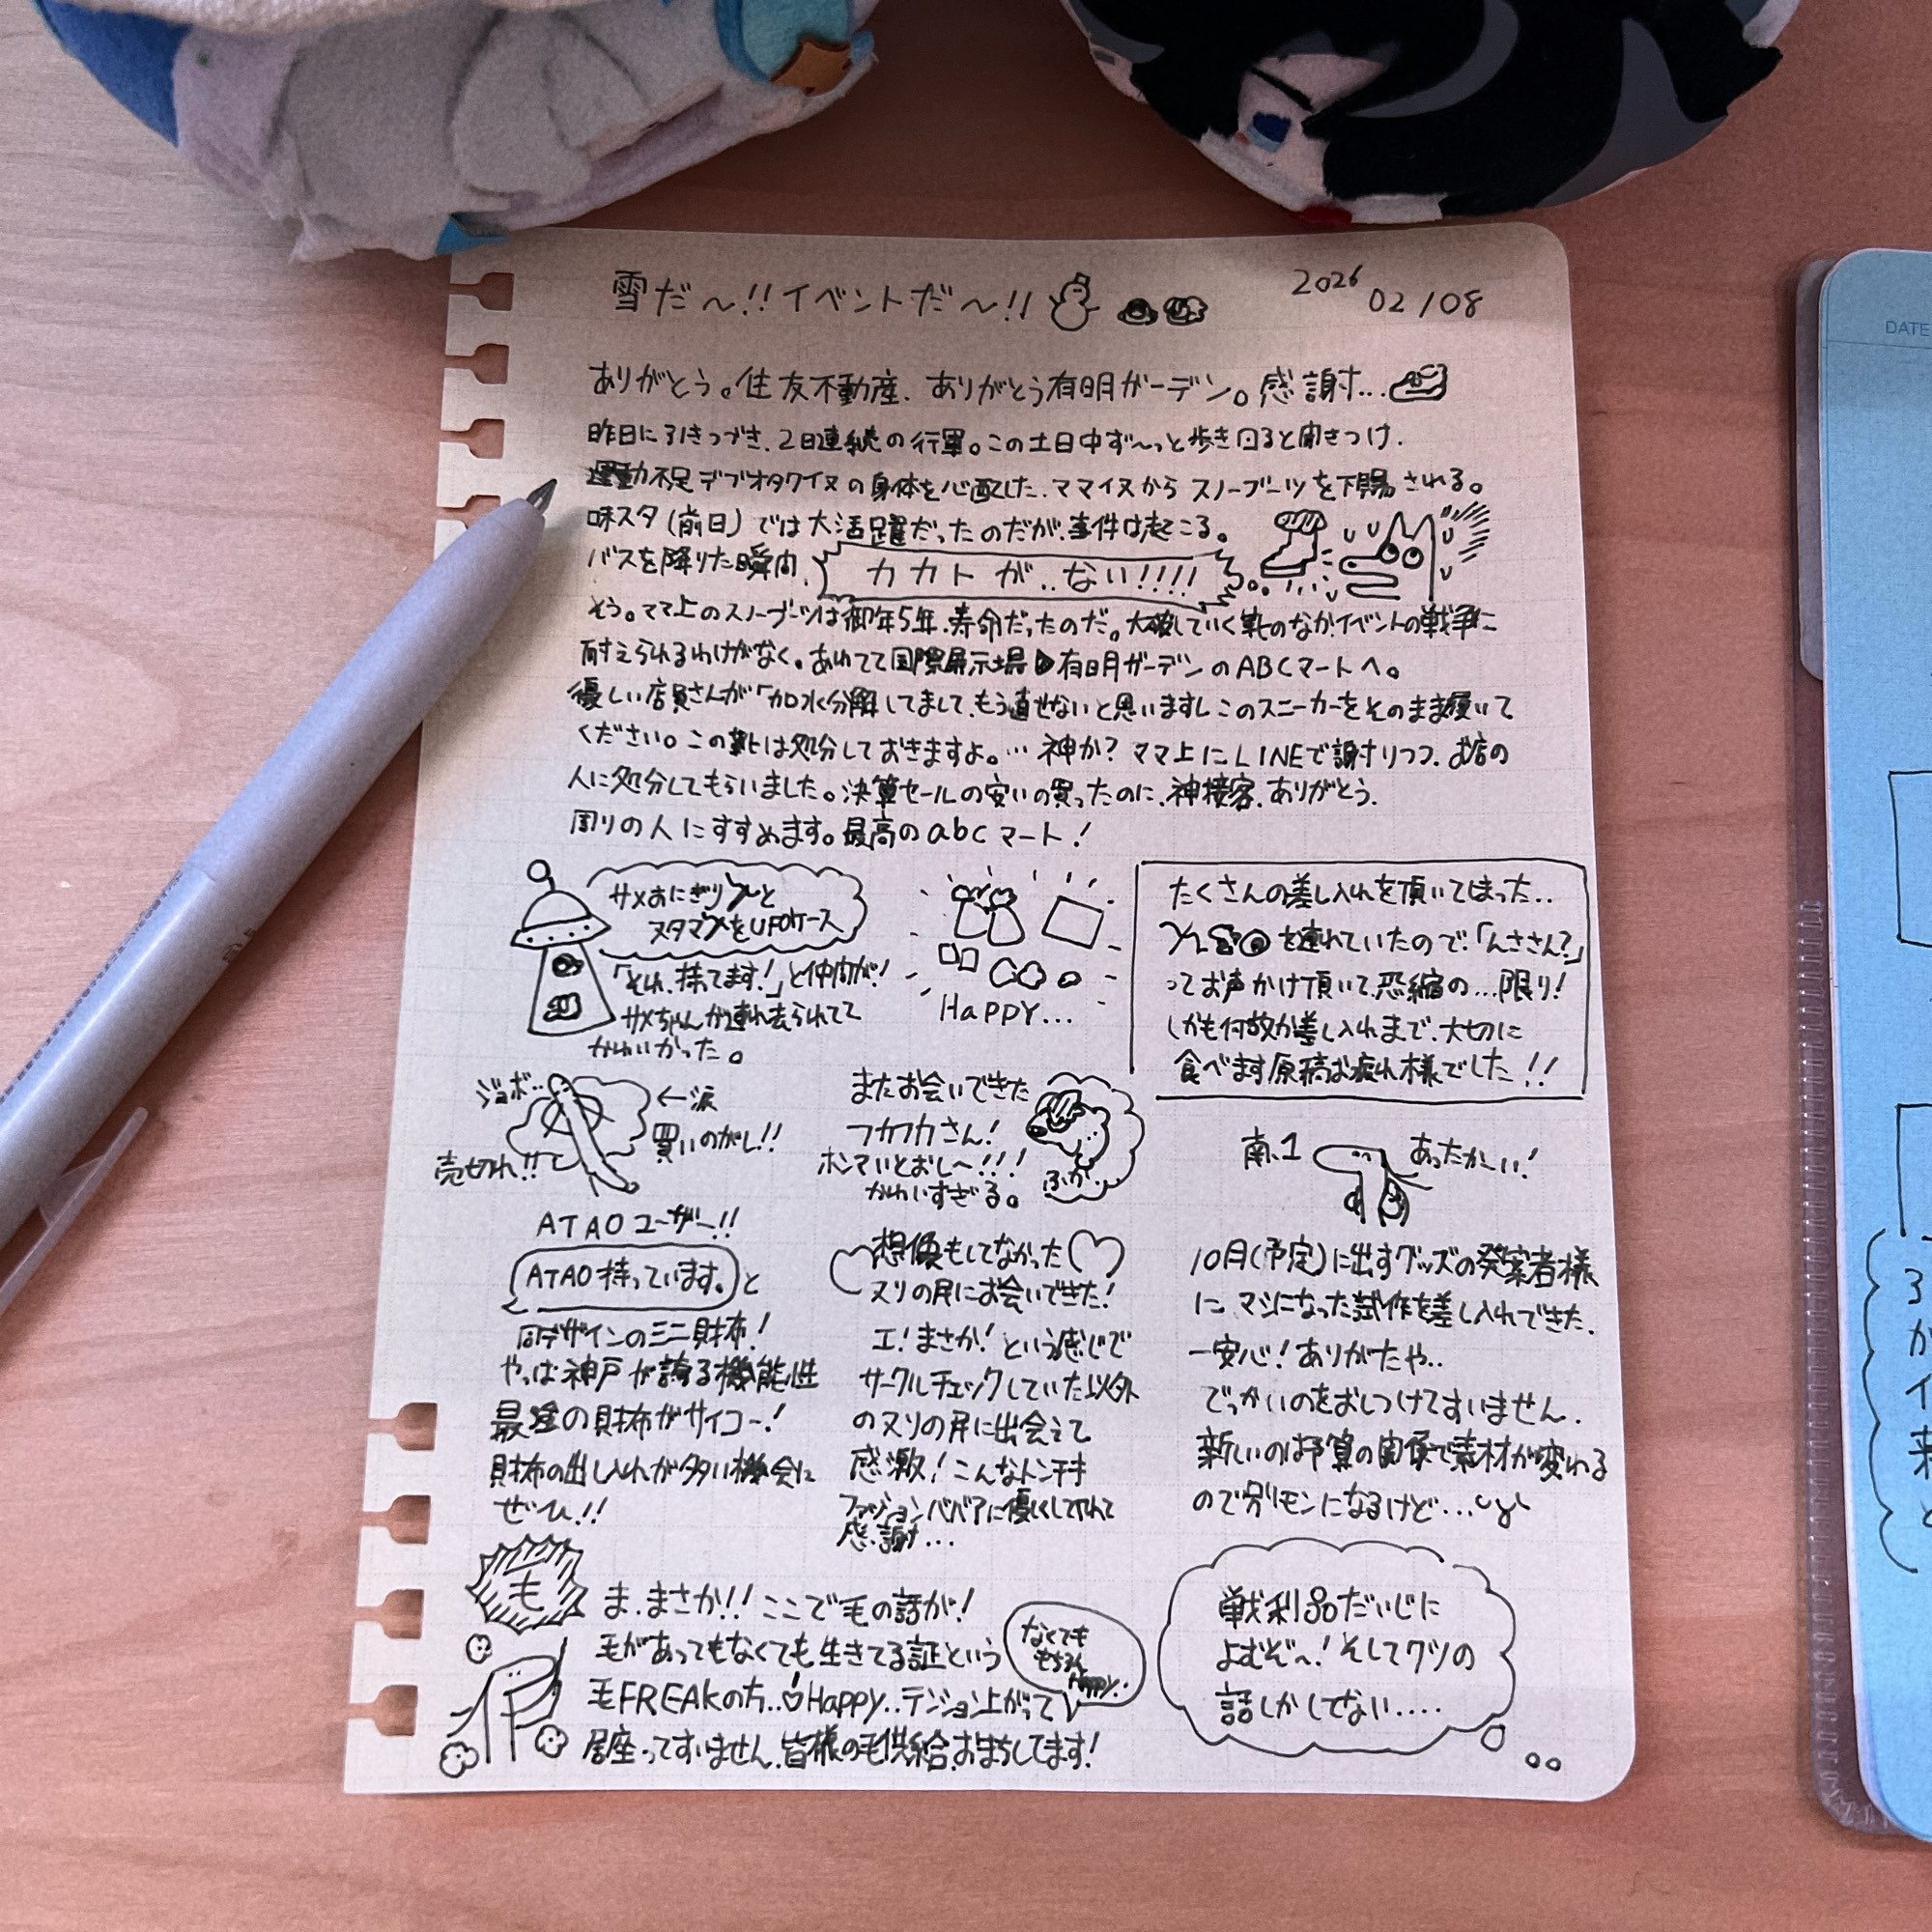 雪だ〜!!イベントだ〜!!
2026 02/08
ありがとう。住友不動産、ありがとう有明ガーデン。感謝…
昨日に引きつづき、2日連続の行軍。この土日中ず〜っと歩き回ると聞きつけ、
運動不足デブオタクイヌの身体を心配した、ママイヌからスノーブーツを下賜される。
味スタ(前日)では大活躍だったのだが、事件は起こる。
バスを降りた瞬間、
カカトが..ない!!!!
そう。ママ上のスノーブーツは御年5年、寿命だったのだ。大破していく靴のなか、イベントの戦争に
耐えられるわけがなく。あわてて国際展示場▶有明ガーデンのABCマートへ。
優しい店員さんが「加水分解してまして、もう直せないと思いますしこのスニーカーをそのまま履いて
ください。この靴は処分しておきますよ。…神か?ママ上にLINEで謝りつつ、お店の
人に処分してもらいました。決算セールの安いの買ったのに、神接客、ありがとう。
周りの人にすすめます。最高のabcマート!
サメおにぎり
と
ヌタマ
をUFOケース
「それ、持てます!」と仲間が!
サメちゃんが連れ去られてて
かわいかった。
HaPPY...
たくさんの差し入れを頂いてしまった..
を連れていたので、「んささん?」
ってお声かけ頂いて、恐縮の…限り!
しかも何故か差し入れまで、大切に
食べます原稿お疲れ様でした!!
ジョボ..
←涙
買いのがし!!
売切れ!!
またお会いできた
フカフカさん!
ホンマいとおし〜!!!
かわいすぎる。
ふか..
南1
あったかーい!
ATAOユーザー!!
ATAO持っています。
と
同デザインのミニ財布!
やっぱ神戸が誇る機能性
最強の財布がサイコー!
財布の出し入れが多い機会に
ぜひ!!
想像もしてなかった
ヌリの民にお会いできた!
エ!まさか!という感じで
サークルチェックしていた以外
のヌリの民に出会えて
感激!こんなトンチキ
ファッションババアに優しくしてくれて
感謝…
10月(予定)に出すグッズの発案者様
に、マシになった試作を差し入れできた、
一安心!ありがたや..
でっかいのをおしつけてすいません。
新しいのは予算の関係で素材が変わる
ので別モンになるけど…
も
ま、まさか!!ここで毛の話が!
毛があってもなくても生きてる証という
毛FREAKの方..Happy..テンション上がって
居座ってすいません、皆様の毛供給、おまちしてます!
なくても
もちろん
Happy..
戦利品だいじに
よむぞ〜!そしてクツの
話しかしてない....
DATE